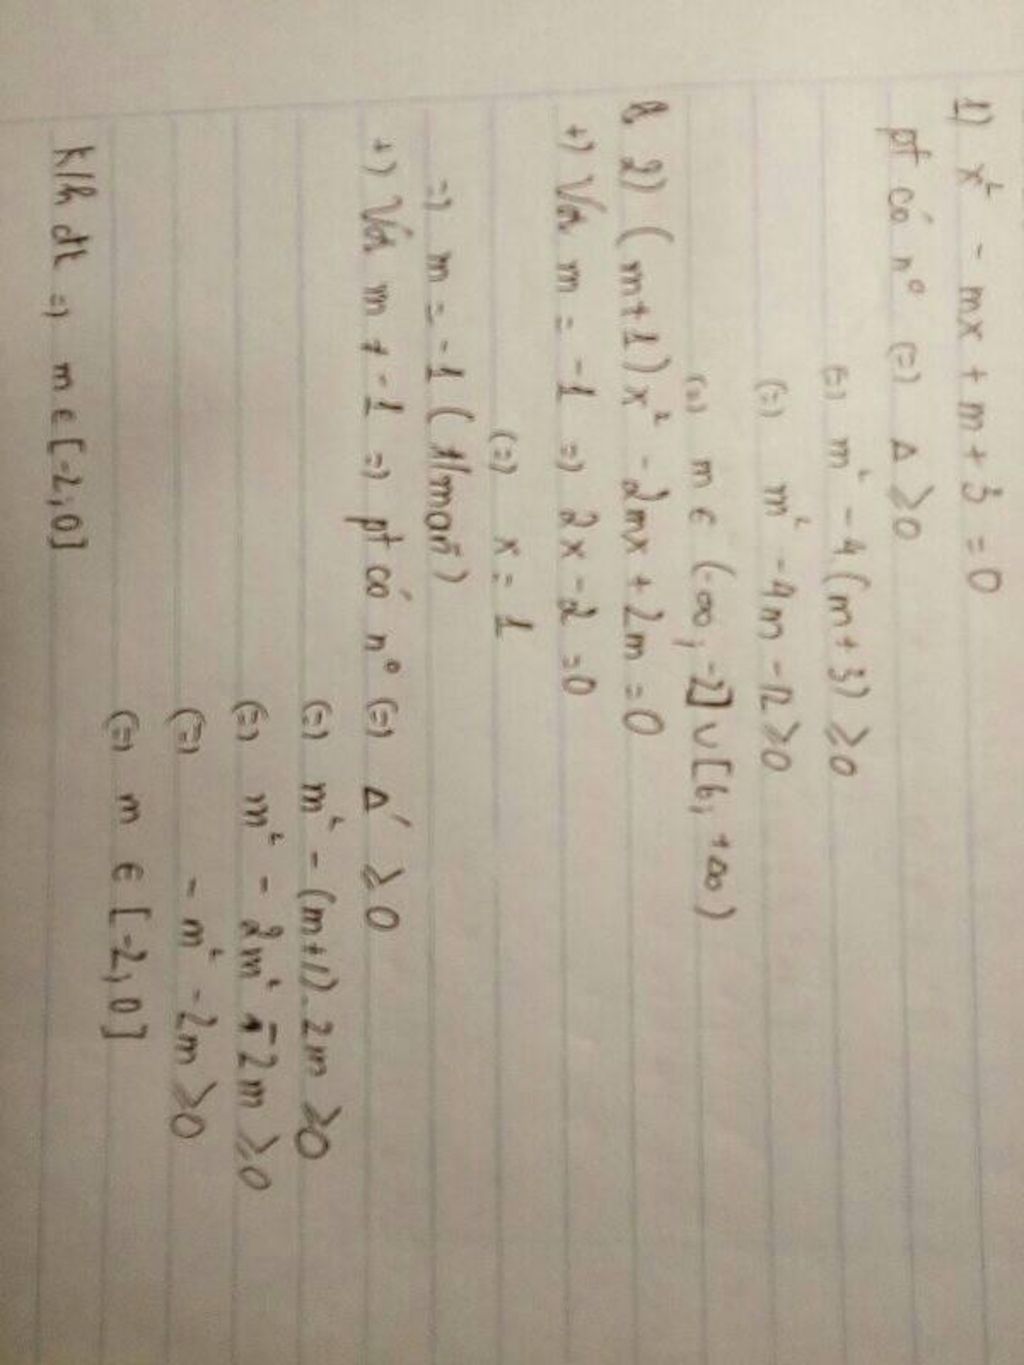 1) x² - mx + m + 3 = 0
pt có n⁰ (=) Δ ≥ 0
(=) m² - 4(m+3) ≥ 0
(=) m² - 4m - 12 ≥ 0
(=) m ∈ (-∞, -2] ∪ [6, +∞)
2) (m+1)x² - 2mx + 2m = 0
+) Với m = -1 => 2x - 2 = 0
(=) x = 1
=) m = -1 (t/mãn)
+) Với m ≠ -1 => pt có n⁰ (=) Δ' ≥ 0
(=) m² - (m+1).2m ≥ 0
(=) m² - 2m² - 2m ≥ 0
(=) - m² - 2m ≥ 0
(=) m ∈ [-2, 0]
k/h đk => m ∈ [-2, 0]